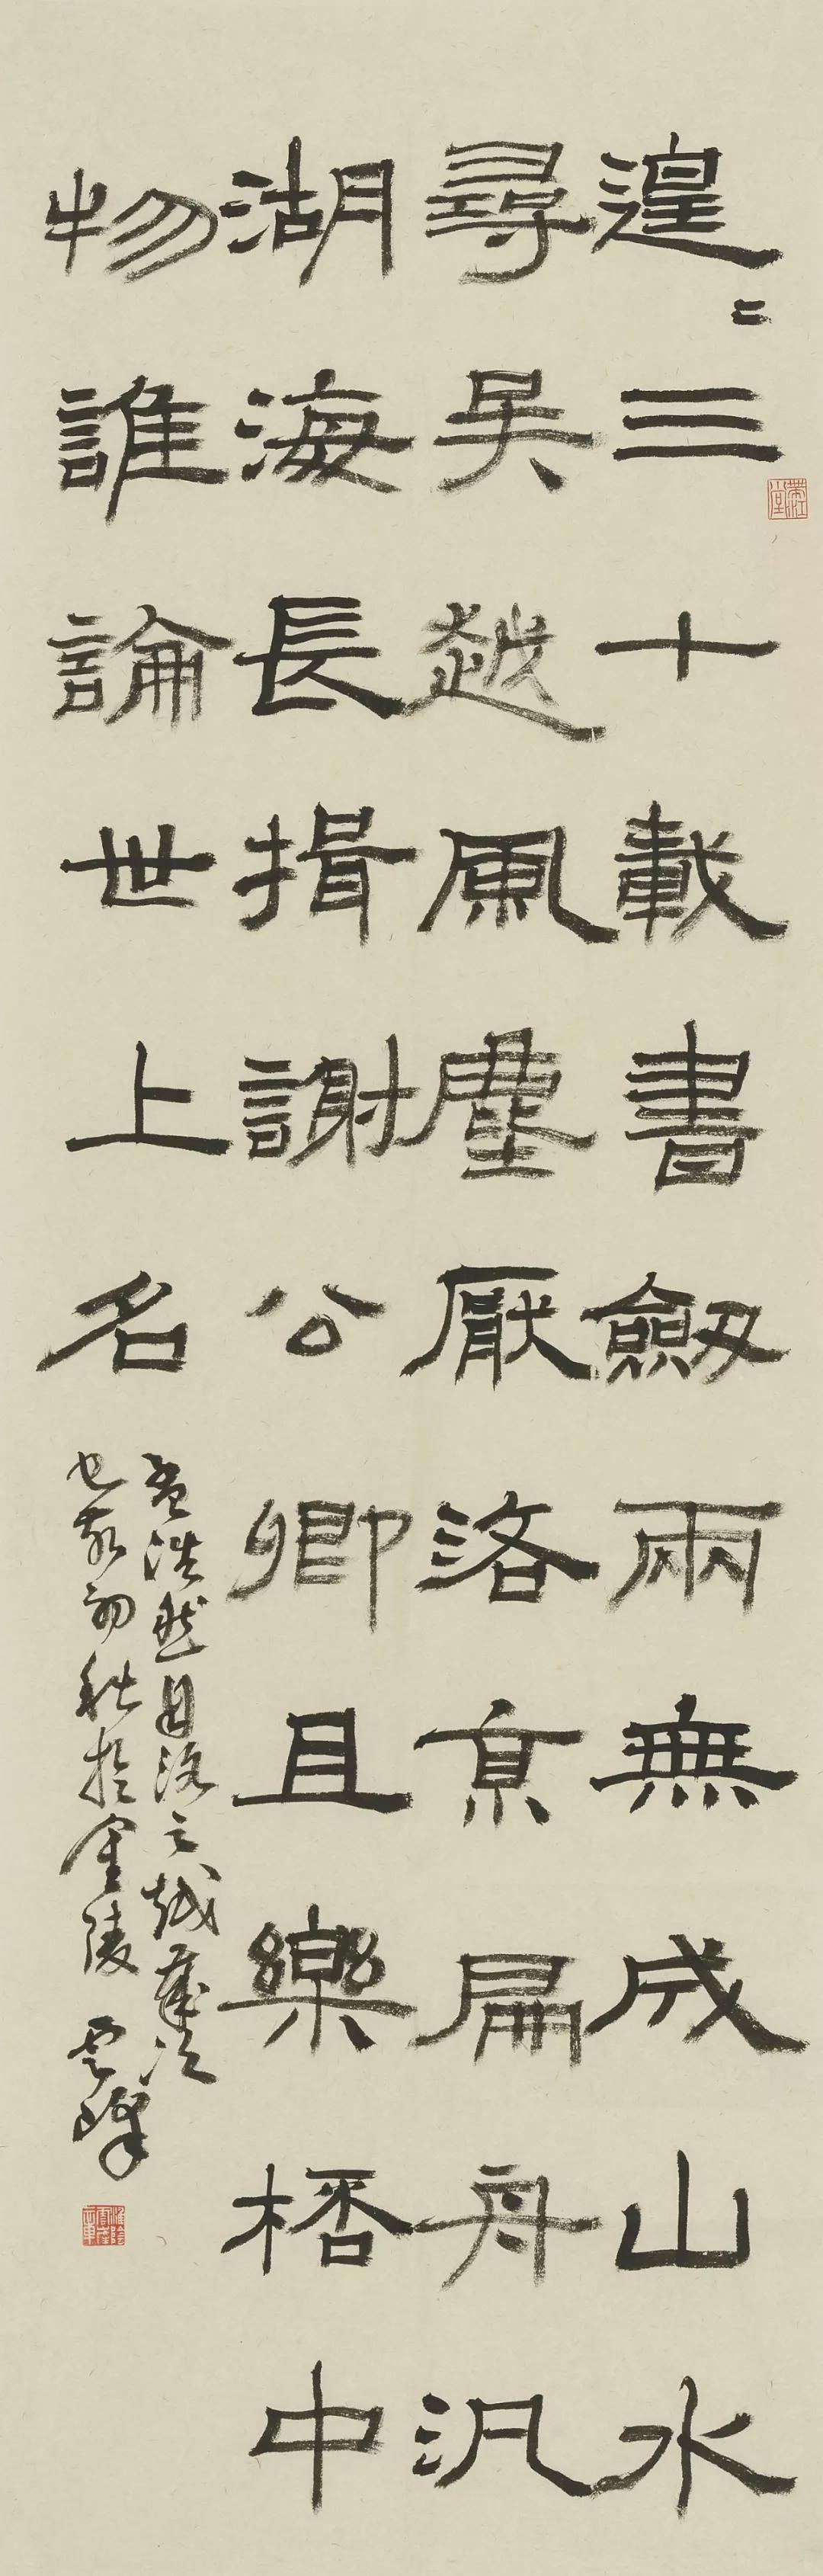 遑〻三十載書劒兩無成山水
尋吳越風塵厭洛京扁舟汎
湖海長揖謝公卿且樂桮中
物誰論世上名
孟浩然自洛之越歲次
己亥初秋於金陵 雲峰